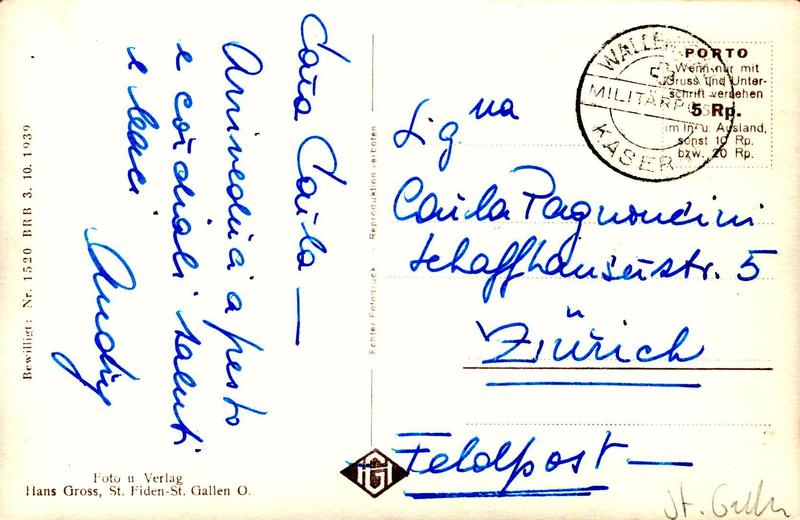 Cara Carla —
Arrivederci a presto
e cordiali saluti
e baci
Andy
Bewilligt: Nr. 1520 BRB 3. 10. 1939
Foto u Verlag
Hans Gross, St. Fiden-St. Gallen O.
Echter Fotodruck — Reproduktion verboten
HG
MILITÄRPOST
KASERNE
PORTO
Wenn nur mit
Gruss und Unter-
schrift versehen
5 Rp.
im In- u. Ausland,
sonst 10 Rp.
bzw. 20 Rp.
Sig na
Carla Pagnoncini
Schaffhauserstr. 5
Zürich
Feldpost —
St. Gallen